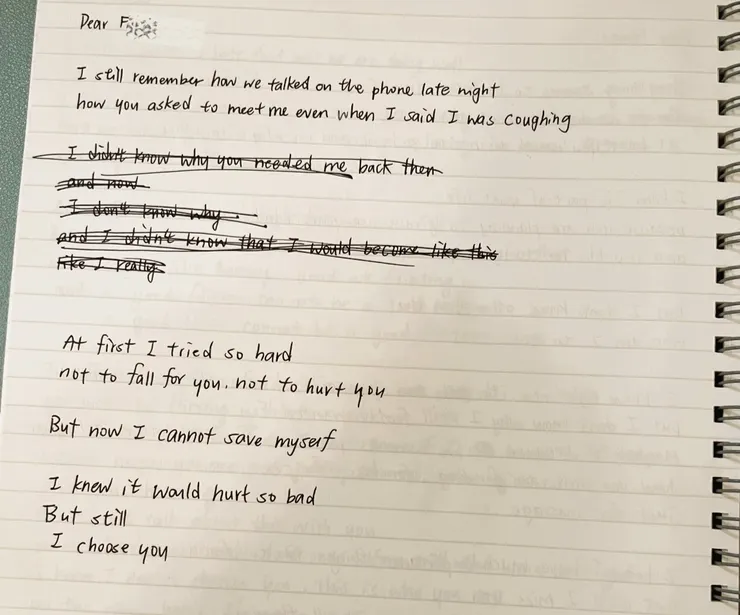 Dear F
I still remember how we talked on the phone late night
how you asked to meet me even when I said I was coughing
I didn't know why you needed me back then
and now
I don't know why
and I didn't know that I would become like this
like I really
At first I tried so hard
not to fall for you. not to hurt you
But now I cannot save myself
I knew it would hurt so bad
But still
I choose you